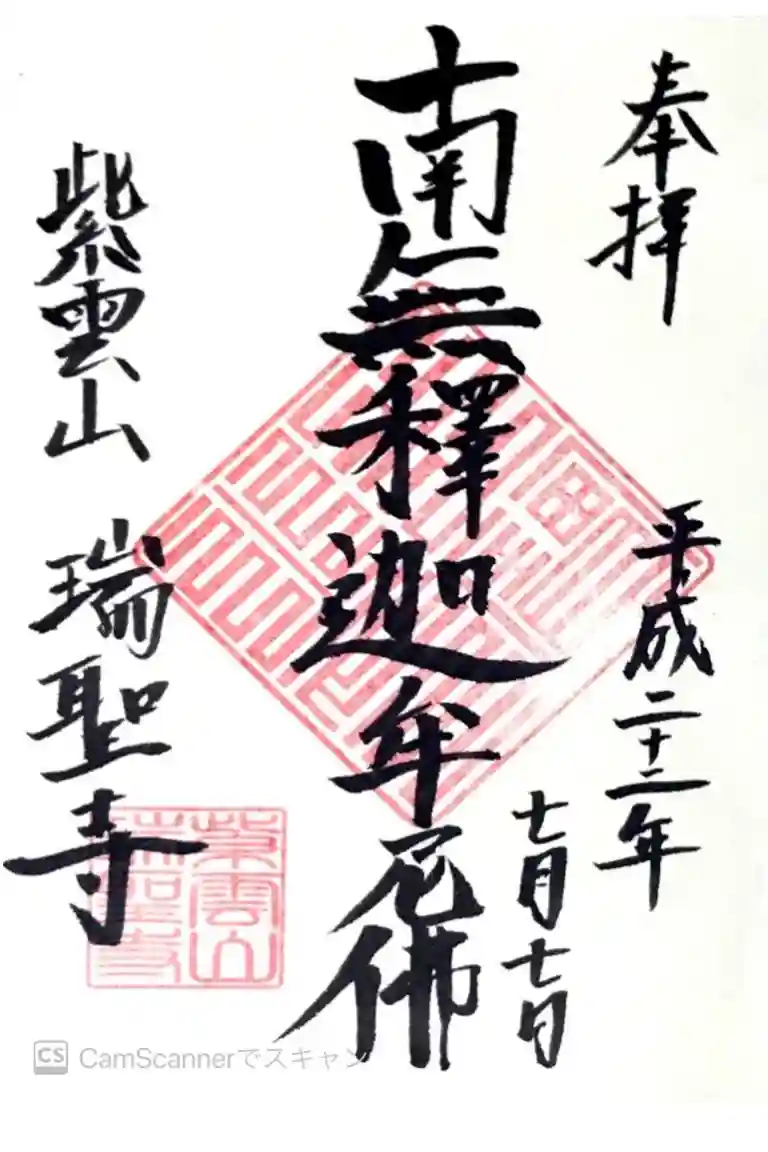 奉拝
平成二十二年
七月十七日
南無釋迦牟尼佛
紫雲山 瑞聖寺
紫雲山
瑞聖寺
CS CamScannerでスキャン